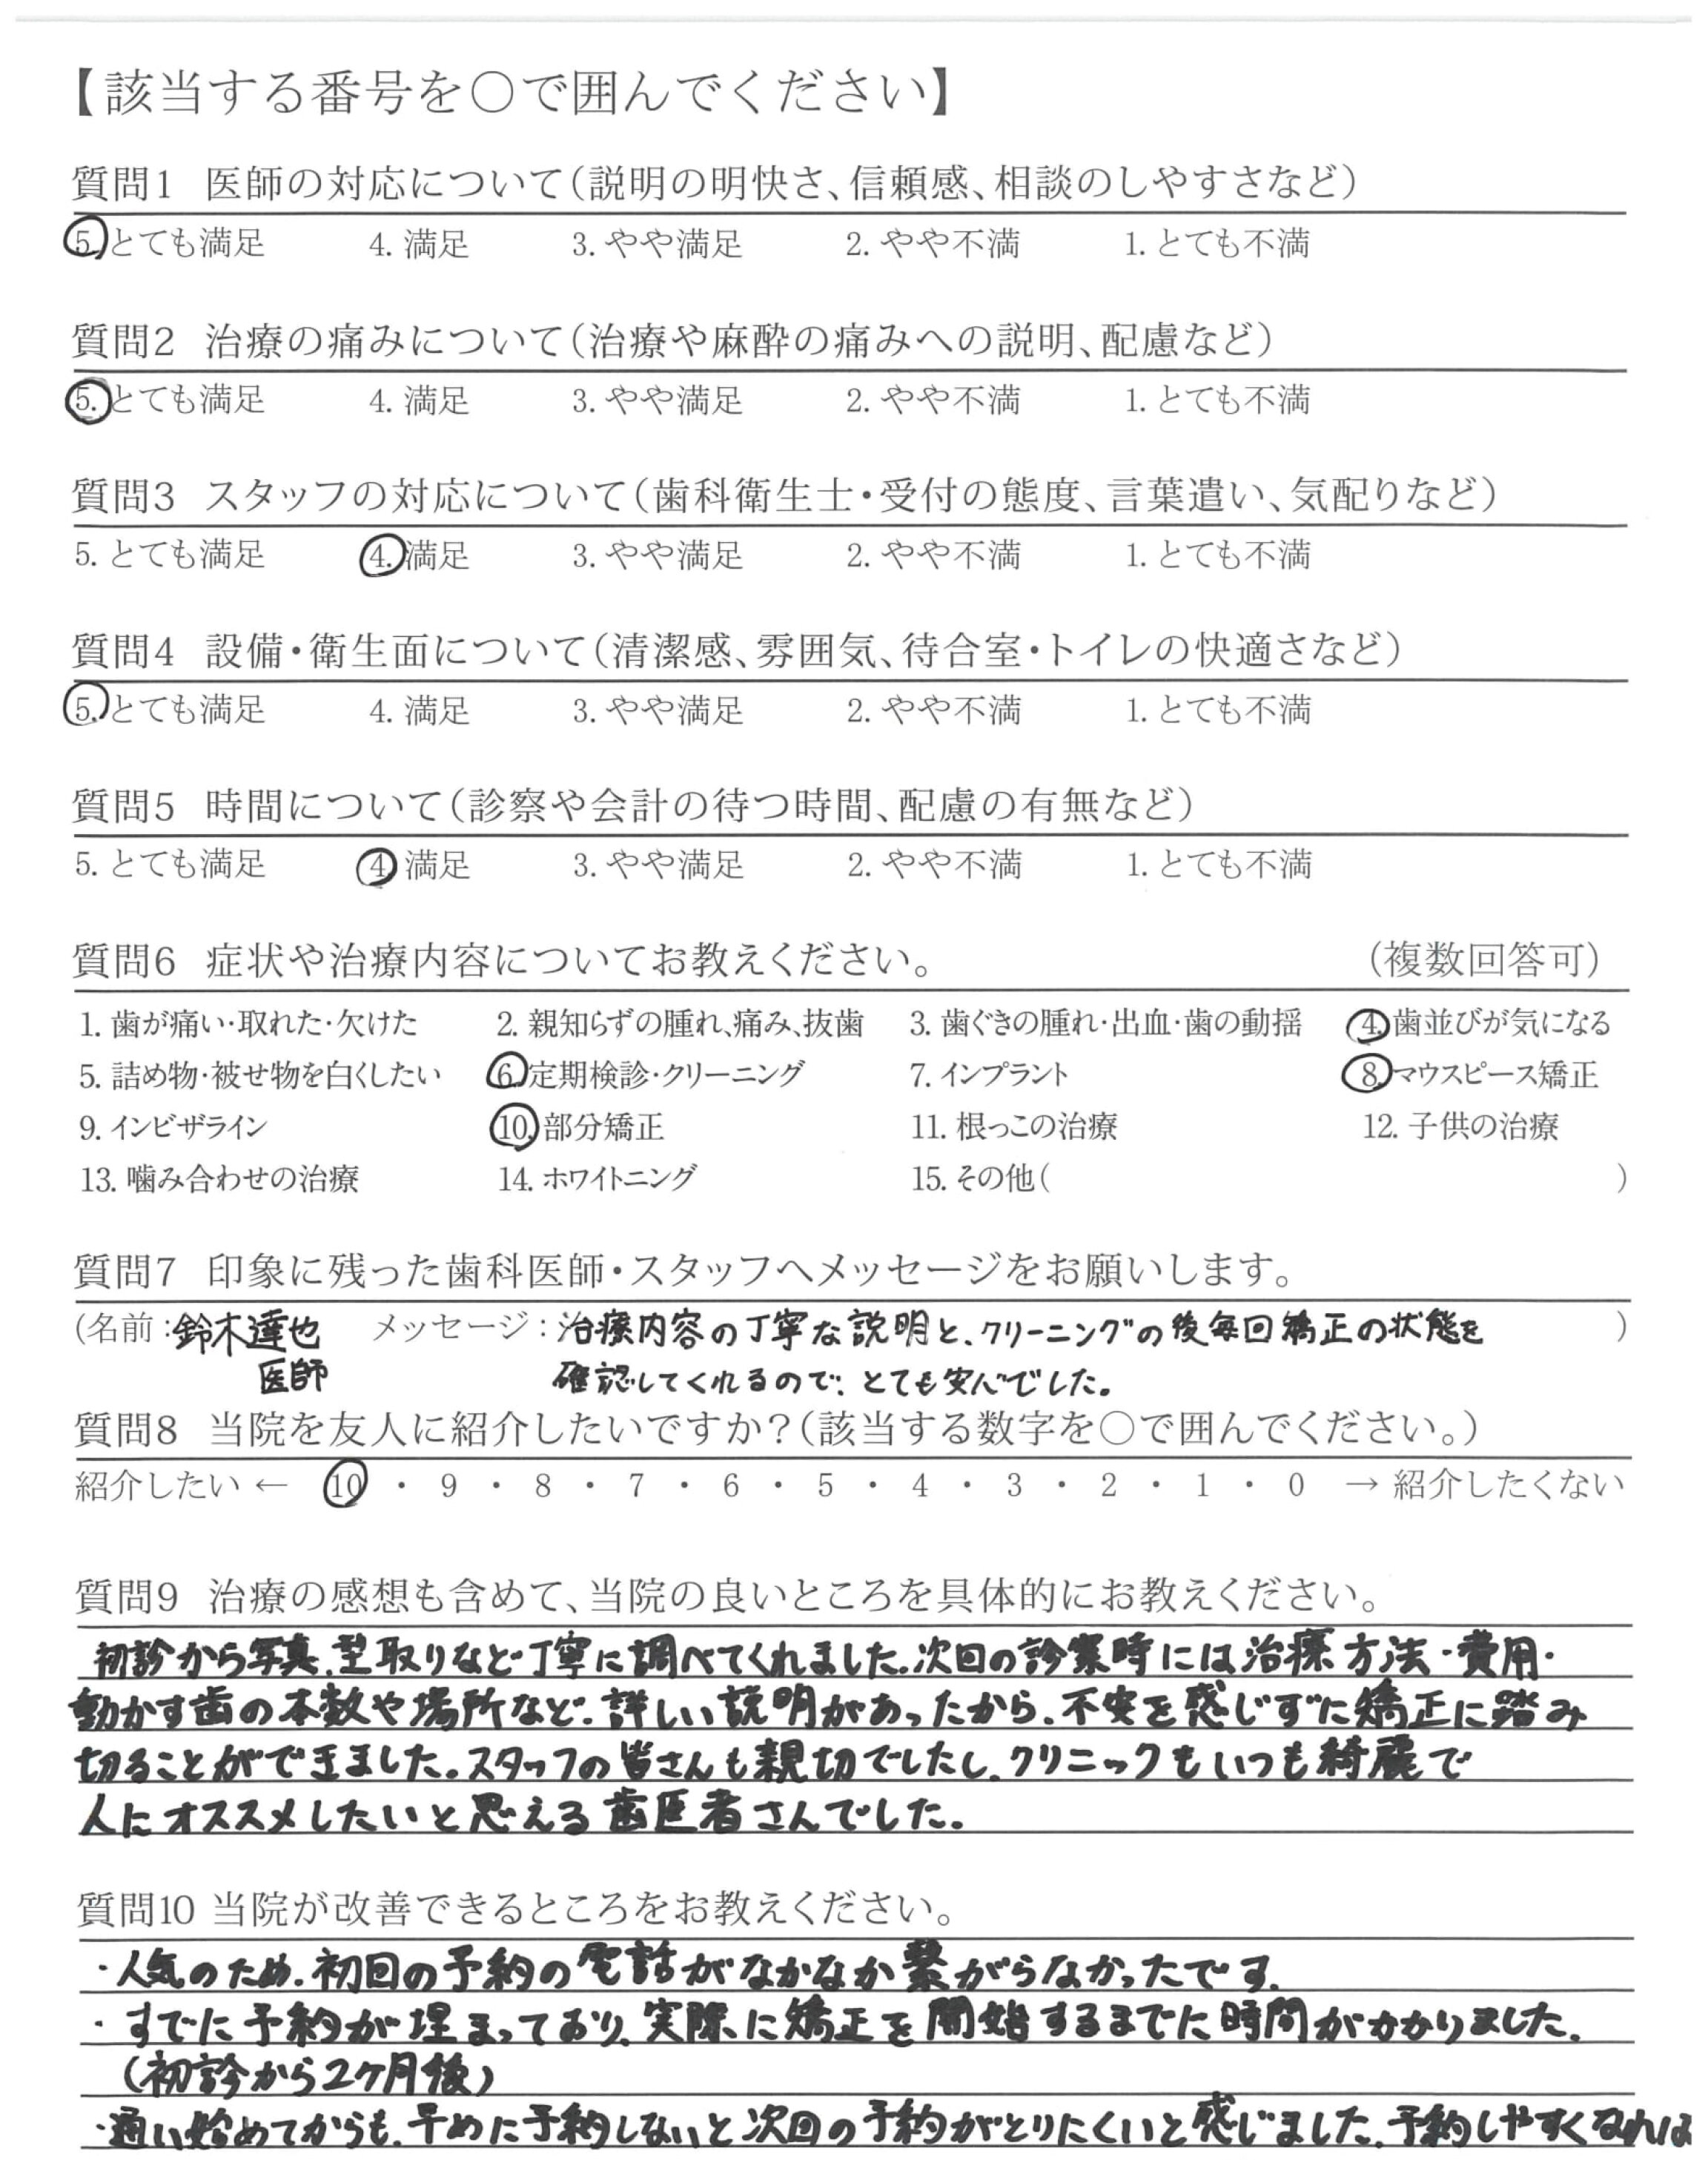 【該当する番号を○で囲んでください】
質問1 医師の対応について(説明の明快さ、信頼感、相談のしやすさなど)
5. とても満足 4. 満足 3. やや満足 2. やや不満 1. とても不満
質問2 治療の痛みについて(治療や麻酔の痛みへの説明、配慮など)
5. とても満足 4. 満足 3. やや満足 2. やや不満 1. とても不満
質問3 スタッフの対応について(歯科衛生士・受付の態度、言葉遣い、気配りなど)
5. とても満足 4. 満足 3. やや満足 2. やや不満 1. とても不満
質問4 設備・衛生面について(清潔感、雰囲気、待合室・トイレの快適さなど)
5. とても満足 4. 満足 3. やや満足 2. やや不満 1. とても不満
質問5 時間について(診察や会計の待つ時間、配慮の有無など)
5. とても満足 4. 満足 3. やや満足 2. やや不満 1. とても不満
質問6 症状や治療内容についてお教えください。 (複数回答可)
1. 歯が痛い・取れた・欠けた 2. 親知らずの腫れ、痛み、抜歯 3. 歯ぐきの腫れ・出血・歯の動揺 4. 歯並びが気になる
5. 詰め物・被せ物を白くしたい 6. 定期検診・クリーニング 7. インプラント 8. マウスピース矯正
9. インビザライン 10. 部分矯正 11. 根っこの治療 12. 子供の治療
13. 噛み合わせの治療 14. ホワイトニング 15. その他( )
質問7 印象に残った歯科医師・スタッフへメッセージをお願いします。
(名前:鈴木達也 メッセージ:治療内容の丁寧な説明と、クリーニングの後毎回矯正の状態を )
医師 確認してくれるので、とても安心でした。
質問8 当院を友人に紹介したいですか?(該当する数字を○で囲んでください。)
紹介したい ← 10 ・ 9 ・ 8 ・ 7 ・ 6 ・ 5 ・ 4 ・ 3 ・ 2 ・ 1 ・ 0 → 紹介したくない
質問9 治療の感想も含めて、当院の良いところを具体的にお教えください。
初診から写真、型取りなど丁寧に調べてくれました。次回の診察時には治療方法・費用・
動かす歯の本数や場所など、詳しい説明があったから、不安を感じずに矯正に踏み
切ることができました。スタッフの皆さんも親切でしたし、クリニックもいつも綺麗で
人にオススメしたいと思える歯医者さんでした。
質問10 当院が改善できるところをお教えください。
・人気のため、初回の予約の電話がなかなか繋がらなかったです。
・すでに予約が埋まっており、実際に矯正を開始するまでに時間がかかりました。
(初診から2ヶ月後)
・通い始めてからも、早めに予約しないと次回の予約がとりにくいと感じました。予約しやすくなれば